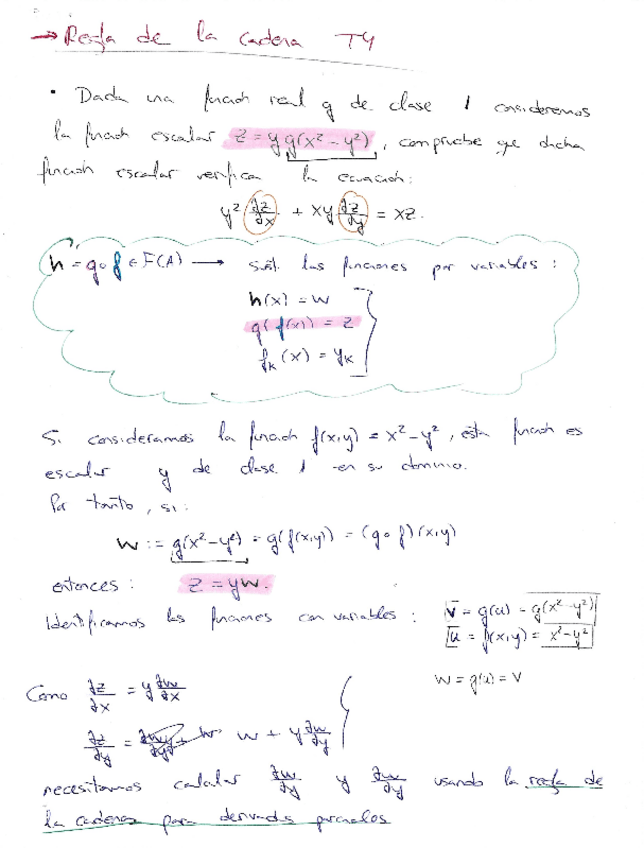 → Regla de la cadena T4
• Dada una función real g de clase 1 consideremos
la función escalar z = y g(x² - y²), compruebe que dicha
función escalar verifica la ecuación:
y² ∂z/∂x + xy ∂z/∂y = xz.
h = g∘f ∈ F(A) → las funciones por variables :
h(x) = w
g(f(x)) = z
fₖ(x) = yₖ
Si consideramos la función f(x,y) = x² - y², esta función es
escalar y de clase 1 en su dominio.
Por tanto, si:
w := g(x² - y²) = g(f(x,y)) = (g∘f)(x,y)
entonces : z = yw.
Identificamos las funciones con variables :
v = g(u) = g(x² - y²)
u = f(x,y) = x² - y²
w = g(u) = v
Como ∂z/∂x = y ∂w/∂x
∂z/∂y = w + y ∂w/∂y
necesitamos calcular ∂w/∂y y ∂w/∂y usando la regla de
la cadena para derivadas parciales